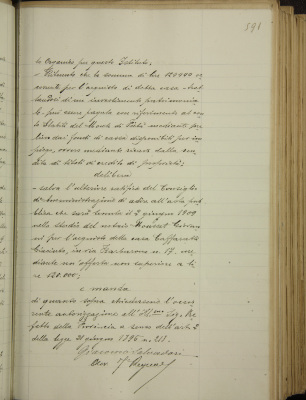 591
lo Organico per questo Istituto;
- Ritenuto che la somma di lire 120000 oc
corrente per l'acquisto di detta casa - trat
tandosi di un investimento patrimonia
le - può essere pagata con riferimento al
Statuti del Monte di Pietà mediante
dai fondi di cassa disponibili per im
piego, ovvero mediante ricavo dalla ven
dita di titoli di credito di proprietà;
delibera
- salva l'ulteriore ratifica del Consiglio
di Amministrazione di adire all'asta pub
blica che sarà tenuta il 2 giugno 1909
nello studio del notaio
per l'acquisto della casa Caffaratti
Giacinto, in via Barbaroux n. 17, me
diante un'offerta non superiore a li
re 120.000;
e manda
di quanto sopra chiedersi l'occor
rente autorizzazione all'Ill.mo Sig. Pre
fetto della Provincia a senso dell'art. 2
della legge 21 giugno 1896 n. 218.
Giacomo Salvadori